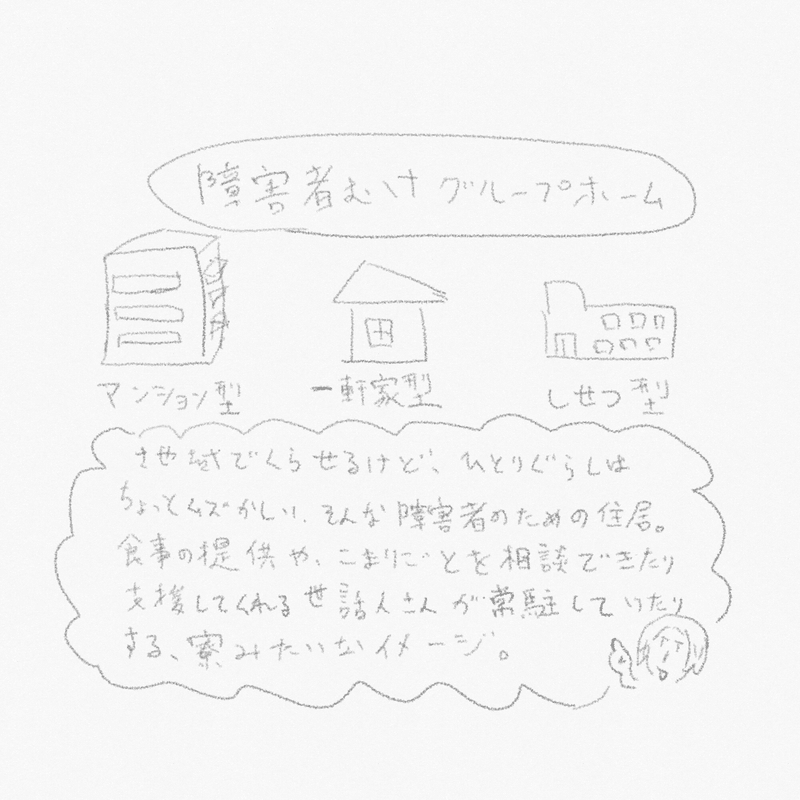 障害者むけグループホーム
マンション型
一軒家型
しせつ型
地域でくらせるけど、ひとりぐらしは
ちょっとムズかしい、そんな障害者のための住居。
食事の提供や、こまりごとを相談できたり
支援してくれる世話人さんが常駐していたり
する、寮みたいなイメージ。